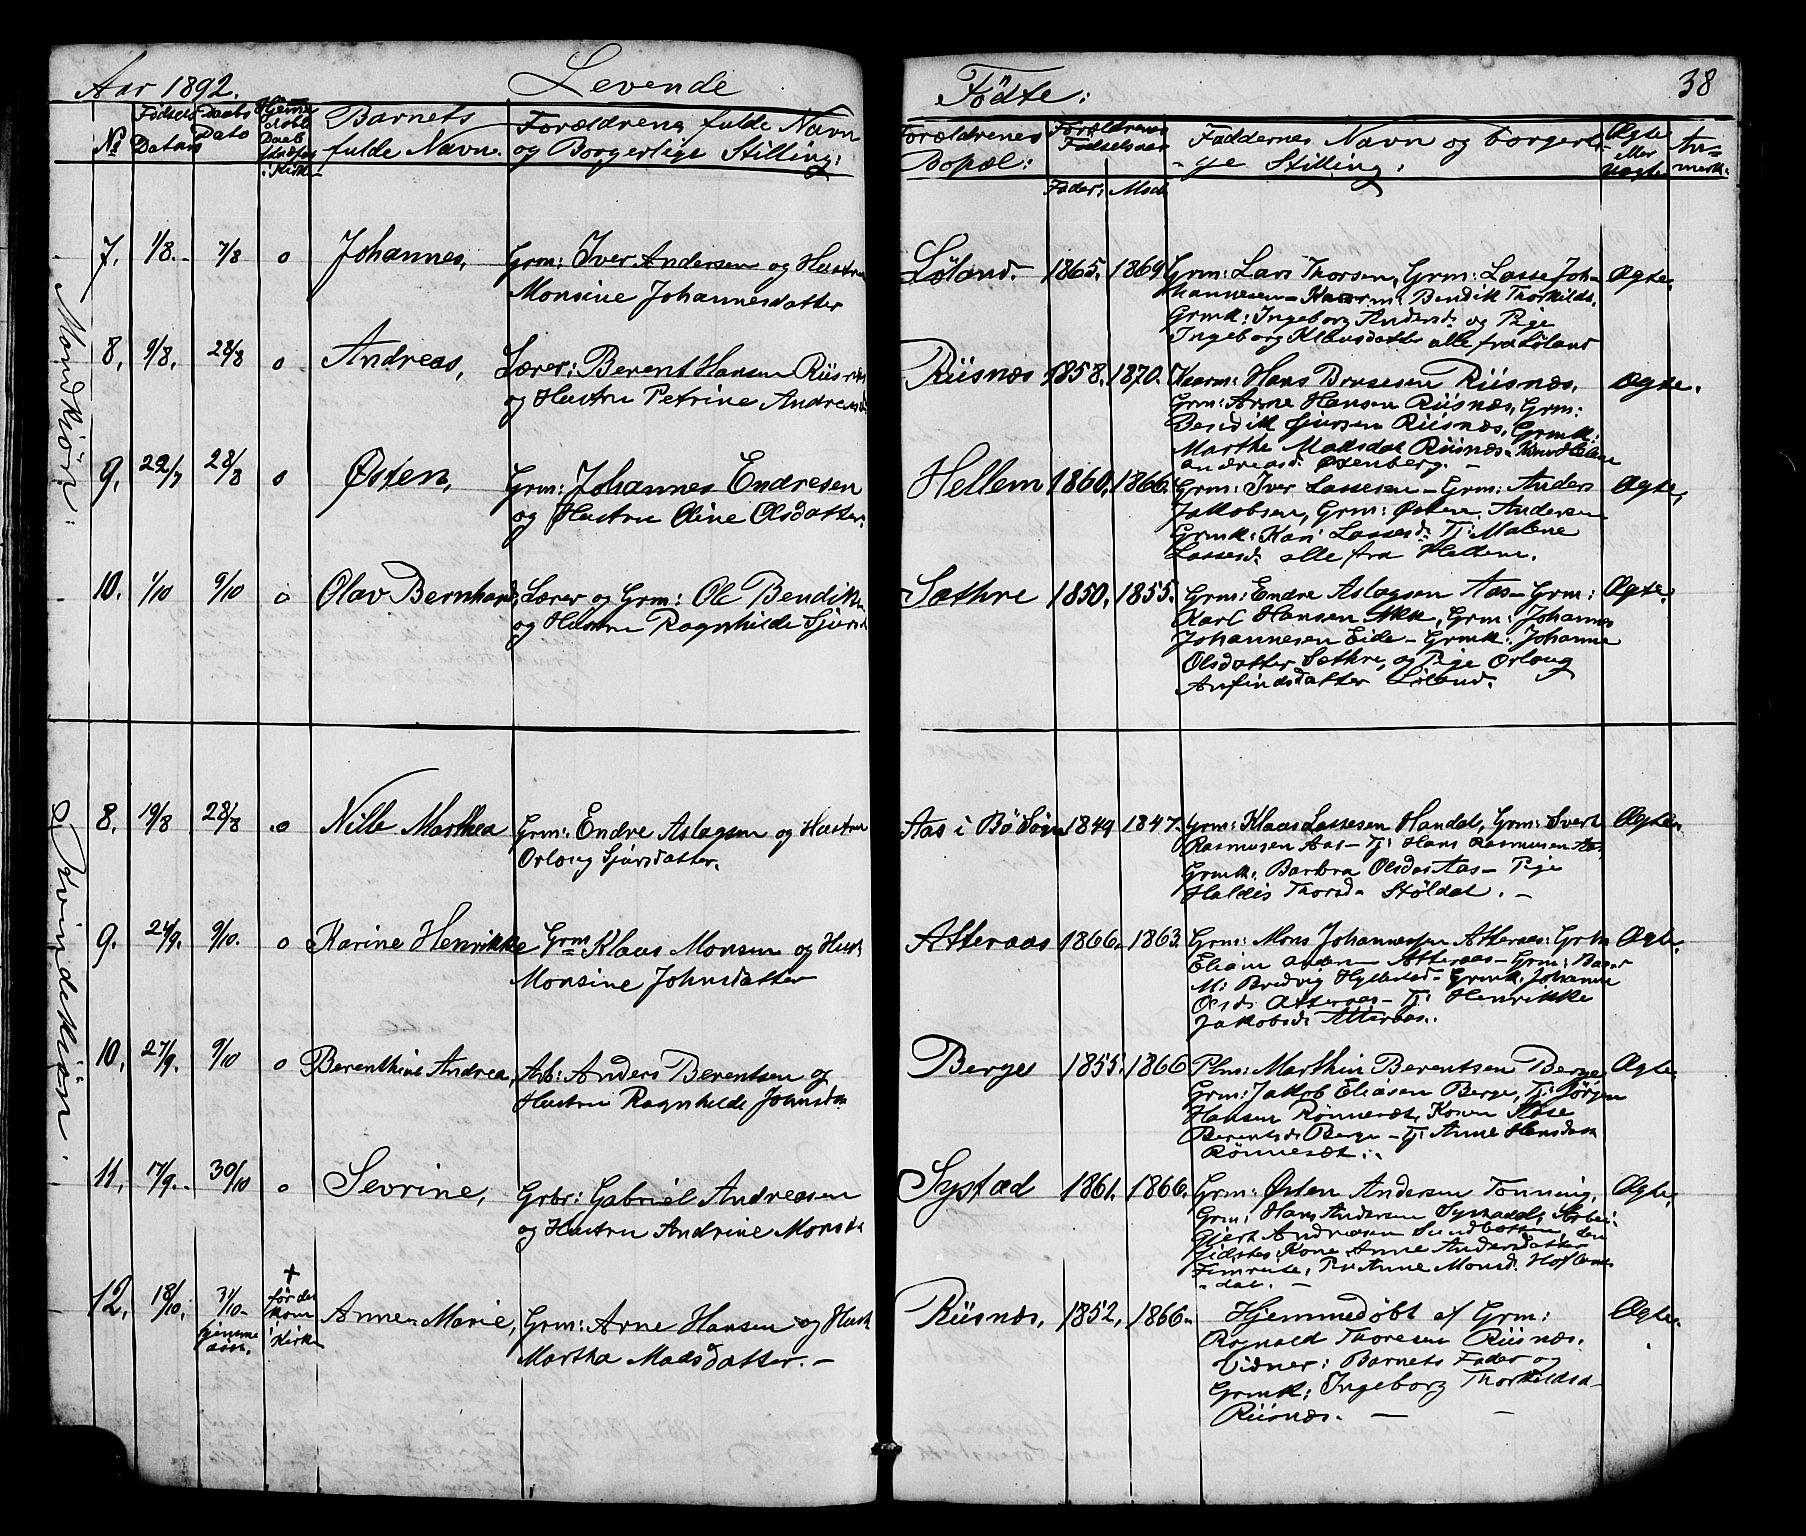 Aar 1892. Levende Fødte: 38
No Fødsels Datum Daabs Dato Barnets fulde Navn. Forældrenes fulde Navn og Borgerlige Stilling: Forældrenes Bopæl: Forældrenes Fødselsaar Fader: Mod. Faddernes Navn og borgerlige Stilling: Ægte eller Uægte Anmerk:
Mandkjön:
7. 1/8. 7/8 o Johannes, Grm: Iver Andersen og Hustru
Monsine Johannesdatter
Löland. 1865. 1869 Grm: Lars Thorsen, Grm: Lasse Joh-
hannesen – Kaarm: Bendik Thorkilds.
Grmk: Ingeborg Andersd. og Pige
Ingeborg Klausdatter alle fra Löland
Ægte.
8. 9/8. 28/8 o Andreas, Lærer: Berent Hansen Riisnæs
og Hustru Petrine Andreasd.
Riisnæs 1858. 1870. Kaarm: Hans Brusesen Riisnæs.
Grm: Arne Hansen Riisnæs, Grm:
Bendik Sjursen Riisnæs, Grmk:
Marthe Madsdat. Riisnæs.
Andreasd. Oxenberg. –
Ægte.
9. 22/7 28/8 o Østen, Grm: Johannes Endresen
og Hustru Oline Olsdatter.
Hellem 1860, 1866. Grm: Iver Lassesen – Grm: Anders
Jakobsen, Grm: Østen Andersen
Grmk: Kari Lassesd. Tj: Malene
Lassesd. alle fra Hellem.
Ægte,
10. 1/10 9/10 o Olav Bernhard, Lærer og Grm: Ole Bendiksen
og Hustru Ragnhilde Sjursd.
Sæthre 1850, 1855. Grm: Endre Aslagsen Aas – Grm:
Karl Hansen Akk, Grm: Johannes
Johannesen Eide – Grmk: Johanne
Olsdatter Sæthre, og Pige Orloug
Anfindsdatter Löland.
Ægte.
Kvindekjön.
8. 19/8 28/8 o Nille Marthea Grm: Endre Aslagsen og Hustru
Orloug Sjursdatter.
Aas i Bö Sogn 1849 1847. Grm: Klaus Lassesen Handal, Grm: Svert
Rasmusen Aas – Tj: Hans Rasmusen Aas,
Grmk: Barbra Olsdat Aas – Pige
Haldis Thorsd. Stöldal. –
Ægte.
9. 24/9. 9/10. o Karine Henrikke Grm Klaas Monsen og Hust.
Monsine Johnsdatter
Atteraas 1866. 1863. Grm: Mons Johannessen Atteraas: Grm
Elias Anders. Atteraas – Grm: Baard
M: Bredvig Hyllestad – Grmk: Johanne
Olsd. Atteraas – Tj: Henrikke
Jakobsd. Atteraas.
Ægte.
10. 27/9. 9/10 o Berenthine Andrea, Arb: Anders Berentsen og
Hustru Ragnhilde Johnsda
Berge 1855. 1866 Plm: Marthin Berentsen Berge,
Grm: Jakob Eliasen Berge, Tj: Jörgen
Hansen Rönneset, Konen Aase
Berentsd. Berge – Tj: Anne Hansdat
Rönneset.
Ægte.
11. 17/9. 30/10 o Sevrine, Grbr: Gabriel Andreasen
og Hustru Andrine Monsda
Systad 1861. 1866. Grm: Østen Andersen Tonning,
Grm: Hans Andersen Systad, Arbei.
Gjert Andreasen Sundbotten, den
sidstes Kone Anne Andersdatter
Fimreite, Pi: Anne Monsd. Hoflands-
dal. –
Ægte,
12. 18/10. 31/10 hjemme + før det kom i Kirke Anne Marie, Grm: Arne Hansen og Hust
Martha Madsdatter. –
Riisnæs, 1852, 1866. Hjemmedöbt af Grm:
Rognald Thoresen Riisnæs.
Vidner: Barnets Fader og
Grmk: Ingeborg Thorkildsd.
Riisnæs. –
Ægte.